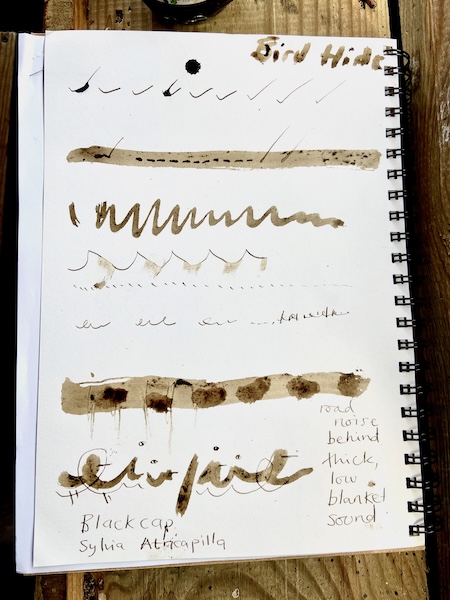 Bird Hide
road
noise
behind
thick,
low
blanket
sound
Blackcap
Sylvia Atracapilla